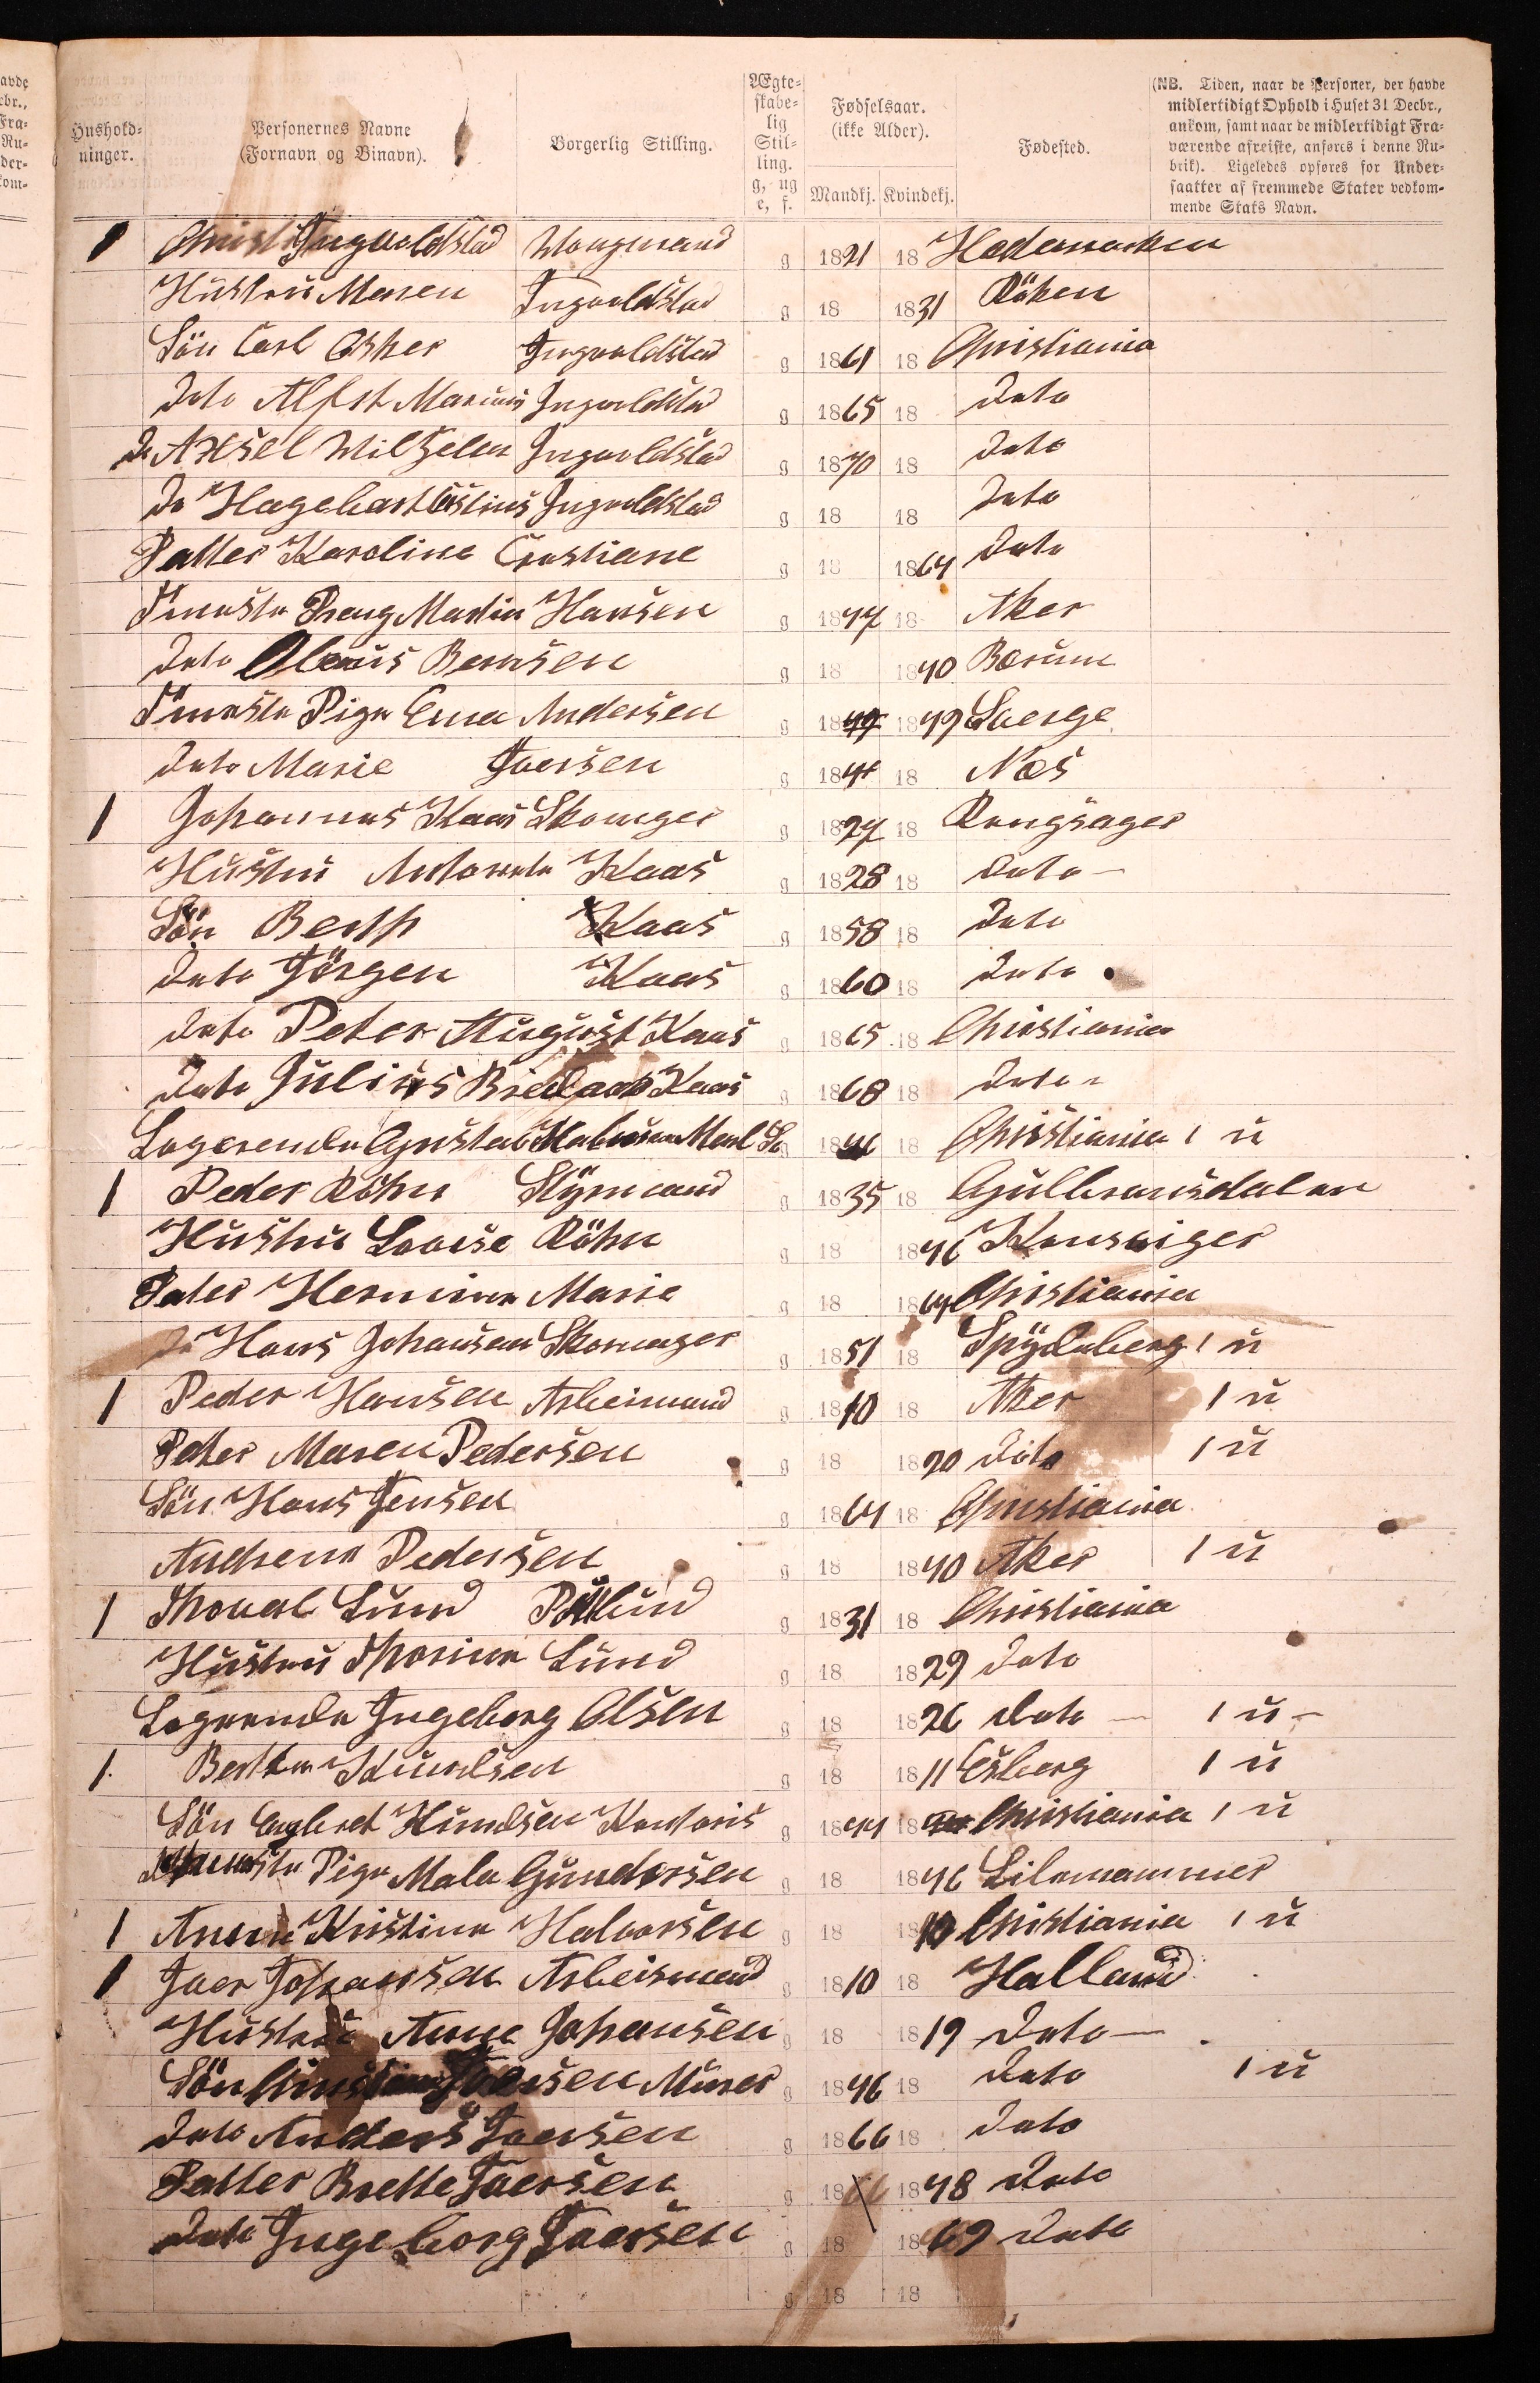 Hushold-
ninger.
Personernes Navne
(Fornavn og Binavn).
Borgerlig Stilling.
Ægte-
skabe-
lig
Stil-
ling.
g, ug
e, f.
Fødselsaar.
(ikke Alder).
Mandkj. Kvindekj.
Fødested.
(NB. Tiden, naar de Personer, der havde
midlertidigt Ophold i Huset 31 Decbr.,
ankom, samt naar de midlertidigt Fra-
værende afreiste, anføres i denne Ru-
brik). Ligeledes opføres for Under-
saatter af fremmede Stater vedkom-
mende Stats Navn.
1 Ingvoldstad g 1821 18 Hedemarken
Hustru Maren Ingvoldstad g 18 1831 Röken
Sön Carl Osker Ingvoldstad g 1861 18 Christiania
Dito Alfet Marius Ingvoldstad g 1865 18 Dito
Do Axsel Wilhelm Ingvoldstad g 1870 18 Dito
Do Hagebart Ingvoldstad g 18 18 Dito
Datter Karoline Cristiane g 18 1864 Dito
Martin Hansen g 1847 18 Aker
Dito Olenus Bernsen g 18 1840 Bærum
Pige Ema Andersen g 18 1849
Dito Marie Iversen g 18 18 Næs
1 Johannes Kaas Skomager g 1827 18 Ringsager
Hustru Kaas g 1828 18 Dito
Sön Kaas g 1858 18 Dito
Dito Jörgen Kaas g 1860 18 Dito
Dito Peter August Kaas g 1865 18 Christiania
Dito Julius Kaas g 1868 18 Dito
Logerende Gustav g 18 18 Christiania 1 u
1 Peder Röhn g 1835 18 Gulbransdalen
Hustru Lovise Röhn g 18 1846
Dater Hermine Marie g 18 1864 Christiania
Do Hans Johansen Skomager g 1851 18 Spydeberg 1 u
1 Peder Hansen Arbeimand g 1810 18 Aker 1 u
Dater Maren Pedersen g 18 1820 Dito 1 u
Sön Hans Jensen g 1864 18 Christiania
Andrene Pedersen g 18 1840 Aker 1 u
1 Thorval Lund g 1831 18 Christiania
Hustru Thorine Lund g 18 1829 Dito
Logerende Ingeborg Olsen g 18 1826 Dito 1 u
1 Knudsen g 18 1811 1 u
Sön Engbret Knudsen Kontoris g 1844 18 Christiania 1 u
Pige Mala Gundersen g 18 1846 Lilemammer
1 Anne Kristine Halvorsen g 18 18 Christiania 1 u
1 Iver Johansen Arbeismand g 1810 18 Halland
Hustru Anne Johansen g 18 1819 Dito
Sön Iversen Murer g 1846 18 Dito 1 u
Dito Anders Iversen g 1866 18 Dito
Datter Brette Iversen g 18 1848 Dito
Dito Ingeborg Iversen g 18 1869 Dito
g 18 18